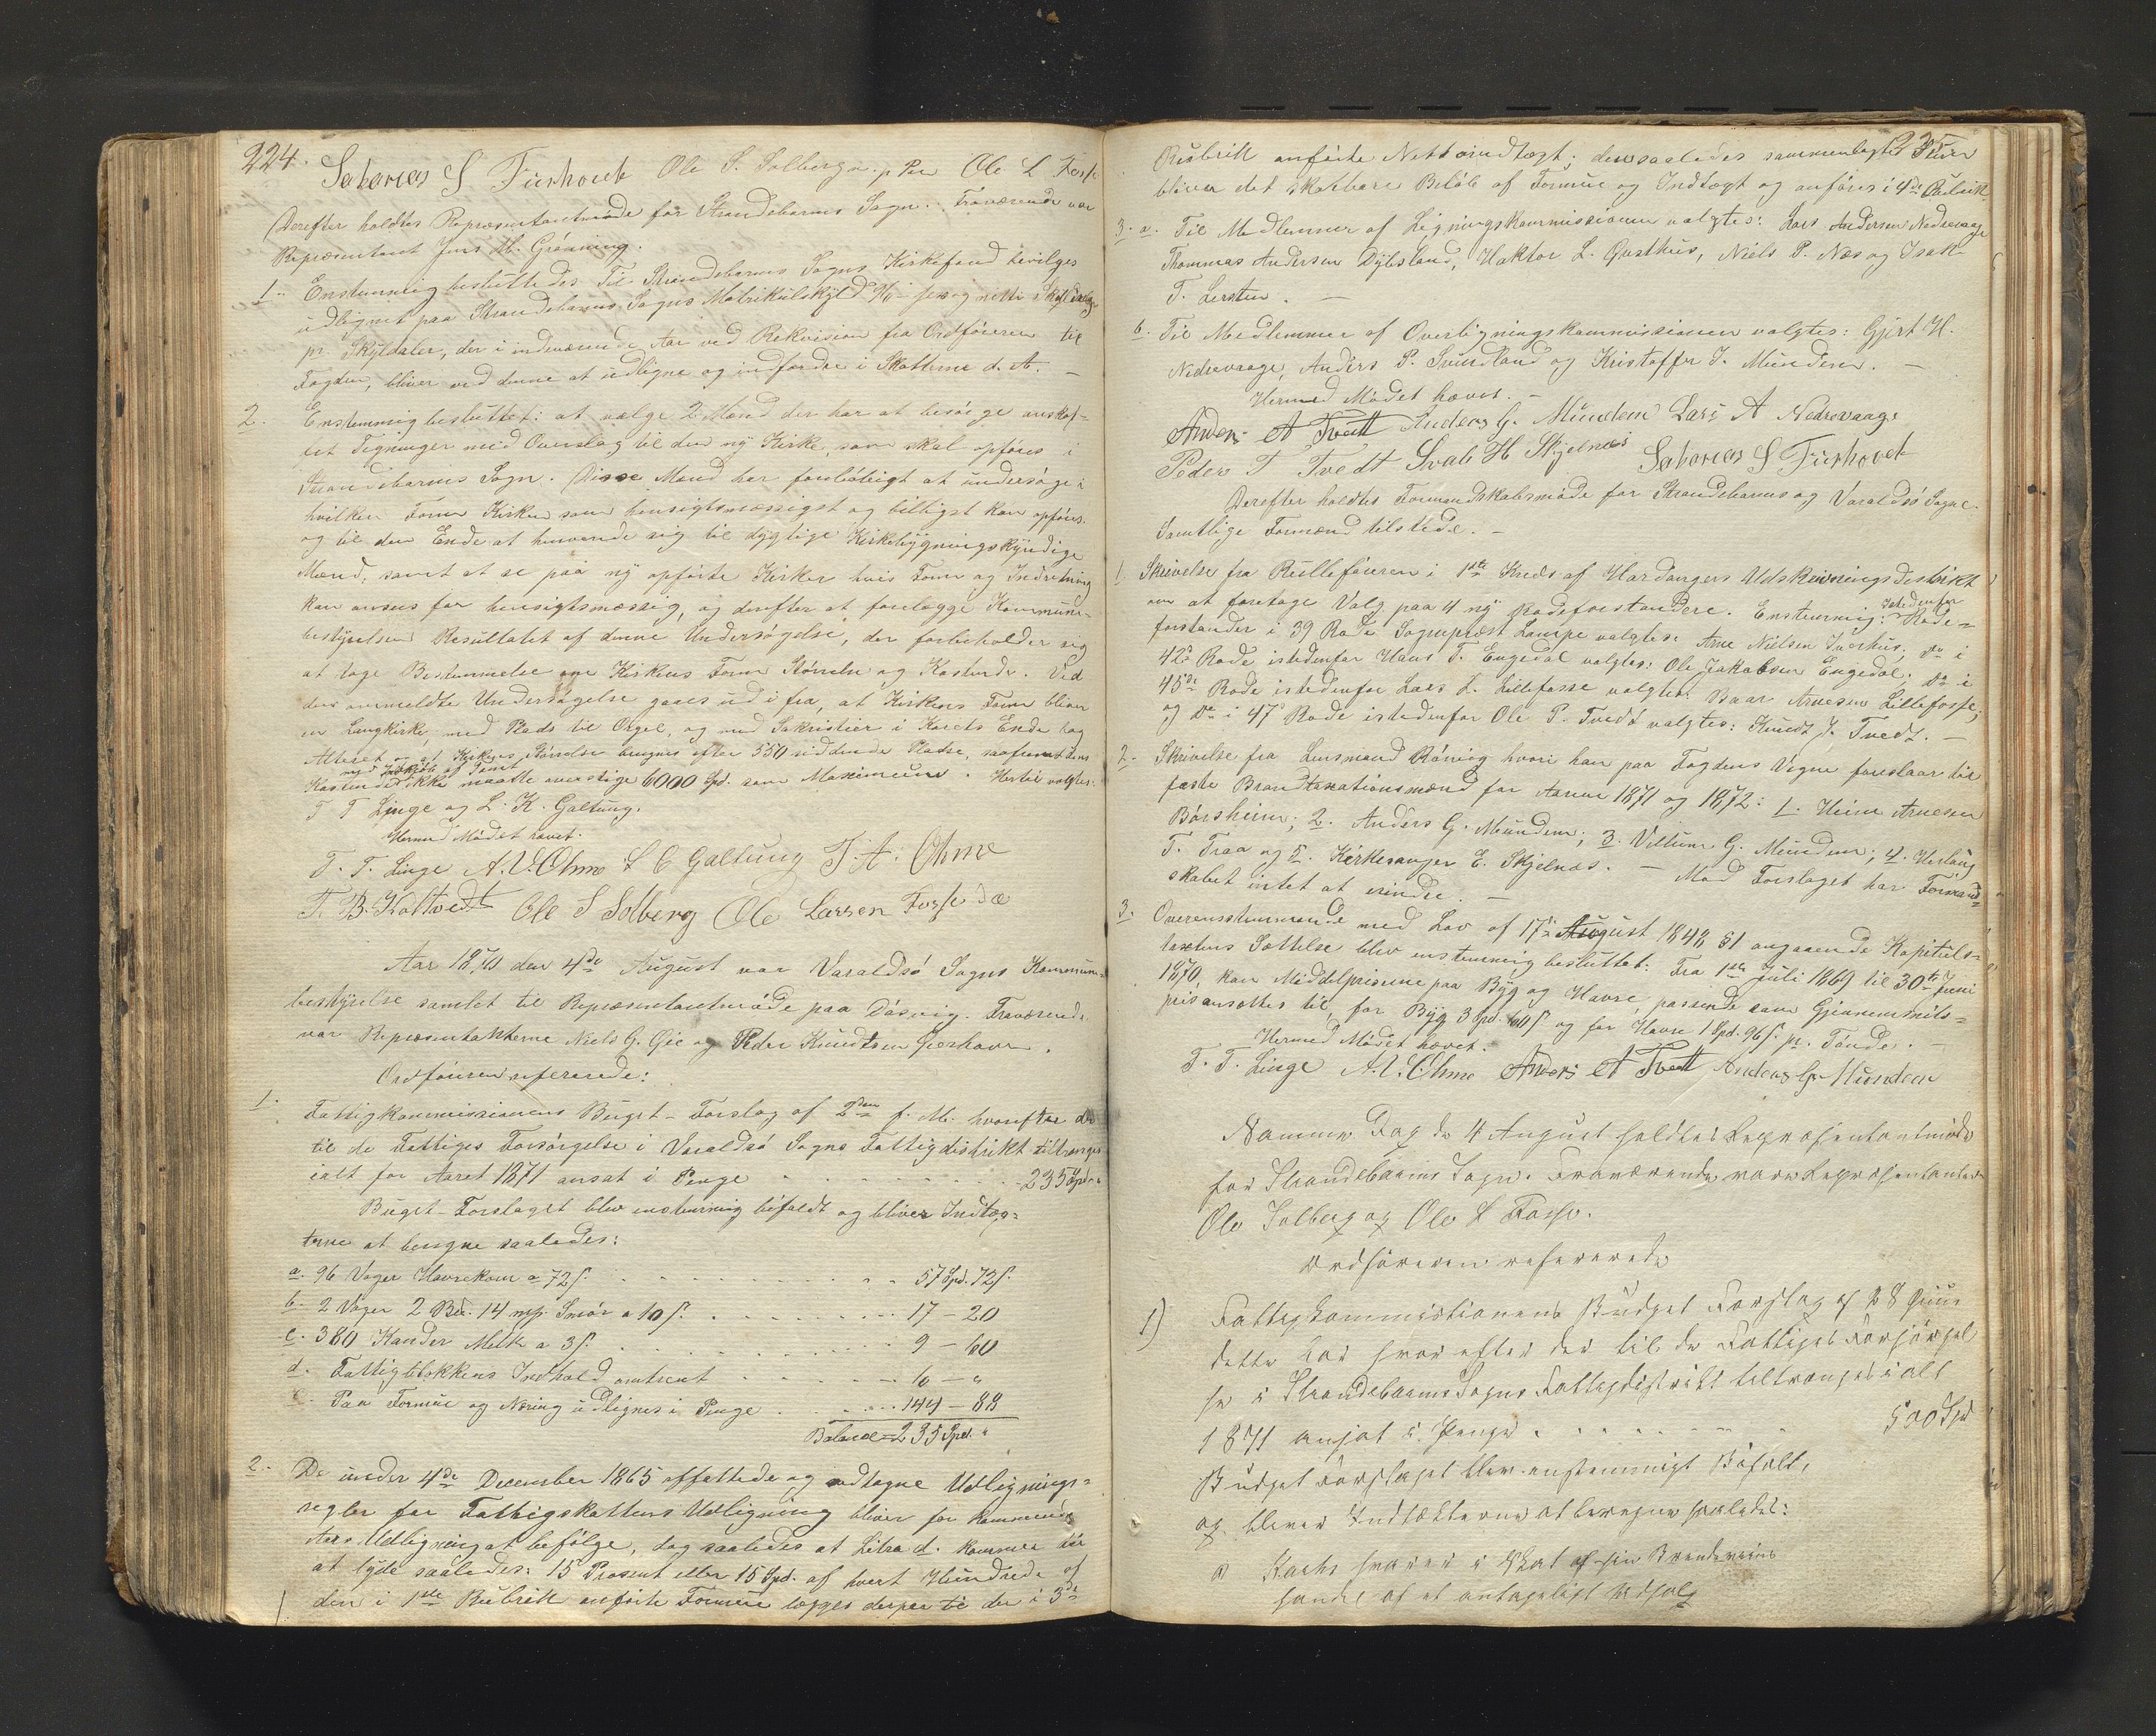 224.
Sakarias S Fuushovet Ole S. Solberg m. p. Pen Ole L Fosse
Derefter holdtes Repræsentantmøde for Strandebarms Sogn. Fraværende var
Repræsentant Jens M. Grønning.
1. Enstemmig besluttedes: Til Strandebarms Sogns Kirkefond bevilges
udlignet paa Strandebarms Sogns Matrikulskyld
pr. Skyldaler, der i indeværende Aar ved Rekvision fra Ordføreren til
Fogden, bliver ved denne at udligne og indfordre i Skatterne d. A. –
2. Enstemmig besluttet: at vælge 2 Mænd der har at besørge anskaf-
fet Tegninger med Overslag til den ny Kirke, som skal opføres i
Strandebarms Sogn. Disse Mænd har foreløbigt at undersøge i
hvilken Form Kirken som hensigtsmæssigst og billigst kan opføres.
og til den Ende at henvende sig til dygtige Kirkebygningskyndige
Mænd, samt at se paa ny opførte Kirker hvis Form og Indredning
kan ansees for hensigtsmæssig, og derefter at forelægge Kommune-
bestyrelsen Resultatet af denne Undersøgelse, der forbeholder sig
at tage Bestemmelse om Kirkens Form Størrelse og Kostende. Ved
den ommeldte Undersøgelse gaaes ud ifra, at Kirkens Form bliver
en Langkirke, med Plads til Orgel, og med Sakristier i Korets Ende bag
Alteret og at Kirkens Størrelse beregnes efter 550 siddende Pladse, saafremt dens
med Indkjøb af Tomt
Kostende ikke maatte overstige 6000 Spd. som Maximum. Hertil valgtes:
T T Linge og L. K. Galtung.
Hermed Mødet hævet.
T. T. Linge A. V. Ohme L C Galtung J. A. Ohme
T. B. Koltvedt Ole S Solberg Ole Larsen Fosse
Aar 1870 den 4de August var Varaldsø Sogns Kommune-
bestyrelse samlet til Repræsentantmøde paa Døsvig. Fraværende
var Repræsentanterne Niels G. Gie og Peder Knudtsen
Ordføreren refererede:
1. Fattigkommissionens Buget-Forslag af 2den f. M. hvorefter der
til de Fattiges Forsørgelse i Varaldsø Sogns Fattigdistrikt tiltrænges
ialt for Aaret 1871 ansat i Penge 235 Spd. "
Buget-Forslaget blev enstemmig bifaldt og bliver Indtæg-
terne at beregne saaledes:
a. 96 Voger Havrekorn a 72 s. 57 Spd. 72 s.
b. 2 Voger 2 Bd. 14 mk. Smør a 10 s. 17 – 20
c. 380 Kander Melk a 3 s. 9 – 60
d. Fattigblokkens Indhold omtrent 6 – "
e. Paa Formue og Næring udlignes i Penge 144 – 88
Balance 235 Spd. "
2. De under 4de December 1865 affattede og vedtagne Udlignings-
regler for Fattigskattens Udligning bliver for kommende
Aars Udligning at befølge, dog saaledes at Litra d. kommer til
at lyde saaledes: 15 Prosent eller 15 Spd. af hvert Hundrede af
den i 1ste Rubrik anførte Formue lægges derpaa til den i 3de
225
Rubrik anførte Nettoindtægt; den saaledes sammenlagte Sum
bliver det skatbare Beløb af Formue og Indtægt og anføres i 4de Rubrik.
3. a. Til Medlemmer af Ligningskommissionen valgtes: Lars Andersen Nedrevaage
Thommas Andersen Dybsland, Haktor L. Gusthus, Niels P. Næs og Isak
T. Lersten. –
b. Til Medlemmer af Overligningskommissionen valgtes: Gjert H.
Nedrevaage, Anders P. Svindland og Kristoffer J. Mundem. –
Hermed Mødet hævet. –
Anders A Tvett Anders G. Mundem Lars A Nedrevaage
Peder T Tvedt Svale H Skjelnæs Sakarias S Fuushovet
Derefter holdtes Formandskabsmøde for Strandebarms og Varaldsø Sogne.
Samtlige Formænd tilstede. –
1. Skrivelse fra Rulleføreren i 1ste Kreds af Hardangers Udskrivningsdistrikt
om at foretage Valg paa 4 ny Rodeforstandere. Enstemmig: Rode-
istedenfor
forstander i 39 Rode Sogneprest Lampe valgtes: Arne Nielsen Sverhus; do i
42de Rode istedenfor Hans T. Engedal valgtes: Ole Jakobsen Engedal; do i
45de Rode istedenfor Lars L. Lillefosse valgtes: Baar Arnesen Lillefosse;
og do i 47de Rode istedenfor Ole P. Tvedt valgtes: Knudt J. Tvedt. –
2. Skrivelse fra Lensmand Røning hvori han paa Fogdens Vegne foreslaar til
faste Brandtaxationsmænd for Aarene 1871 og 1872: 1. Heine Arnesen
Børsheim; 2. Anders G. Mundem; 3. Villum G. Mundem; 4. Herlaug
T. Traa og 5. Kirkesanger E. Skjelnæs. – Mod Forslaget har Formand-
skabet intet at erindre. –
3. Overensstemmende med Lov af 17de August 1848 §1 angaaende Kapituls-
taxtens Sættelse blev enstemmig besluttet: Fra 1ste Juli 1869 til 30te Juni
1870, kan Middelprisene paa Byg og Havre, passende som Gjennemsnits-
pris ansættes til, for Byg 3 Spd. 60 s og for Havre 1 Spd. 96 s. pr. Tønde. –
Hermed Mødet hævet.
T. T. Linge A. V. Ohme Anders A Tvett Anders G. Mundem
Namme Dag de 4 August holdtes Repræsentantmøde
for Strandebarms Sogn. Fraværende vare Repræsentanterne
Ole Solberg og Ole L Fosse.
Ordføreren refererede
1) Fattigkommistionens Budget Forslag af 28 Juni
dette Aar hvorefter der til de Fattiges Forsørgel
se i Strandebarms Sogns Fattigdistrikt tiltrænges i alt
1871 ansat i Penge 500 Spd
Budget Forslaget blev enstemmigt Bifalt,
og bliver Indtækterne at beregne saaledes:
a Kachs svarer i Skat af sin Brændeviins
handel af et antageligt Udsalg